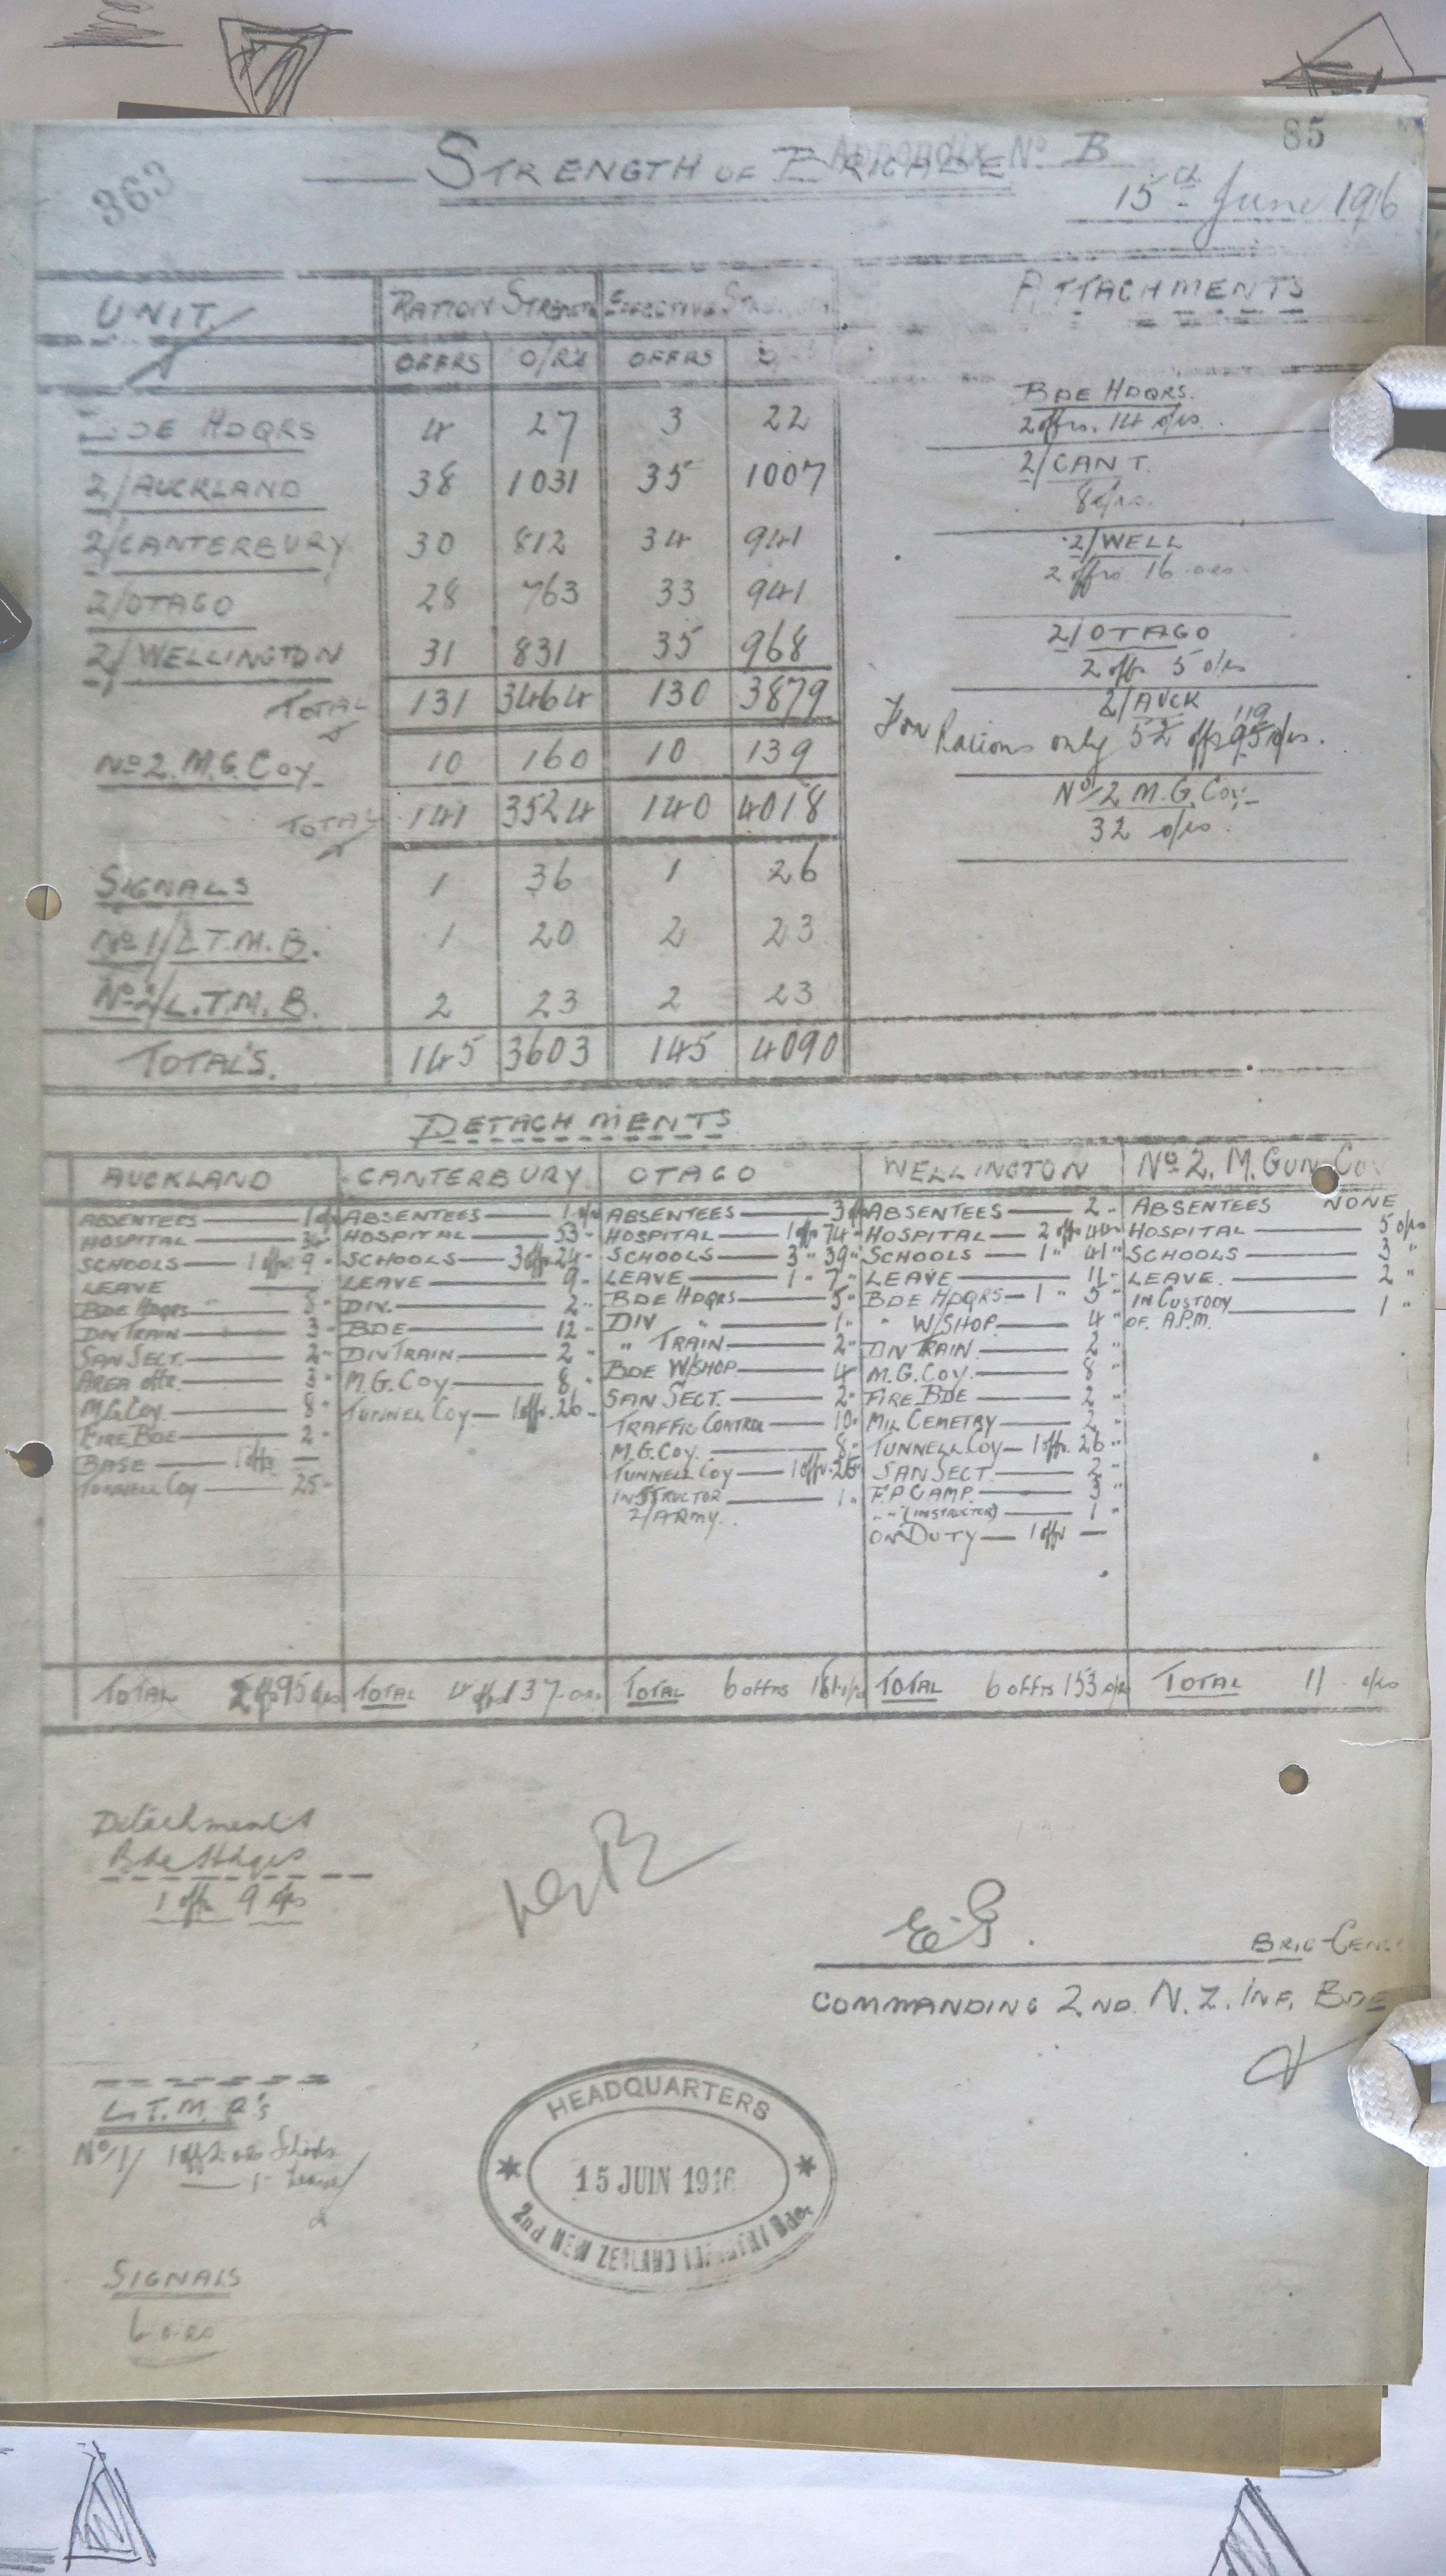 363
85
Appendix No B
STRENGTH OF BRIGADE
15th June 1916
UNIT RATION STRENGTH EFFECTIVE
ATTACHMENTS
OFFRS O/RS OFFRS
BDE HDQRS 4 27 3 22
2/AUCKLAND 38 1031 35 1007
2/CANTERBURY 30 812 34 941
2/OTAGO 28 763 33 941
2/WELLINGTON 31 831 35 968
TOTAL 131 3464 130 3879
No 2. M.G. Coy. 10 160 10 139
TOTAL 141 3524 140 4018
SIGNALS 1 36 1 26
No 1/L.T.M.B. 1 20 2 23
No 2/L.T.M.B. 2 23 2 23
TOTALS. 145 3603 145 4090
BDE HDQRS.
2 offrs. 14 o/rs.
2/CANT.
8 o/rs.
2/WELL
2 offrs 16 ors.
2/OTAGO
2 offr 5 o/rs
2/AUCK
119
For Rations only 52 offrs 95 o/rs.
No 2 M.G. Coy.
32 o/rs.
DETACHMENTS
AUCKLAND
ABSENTEES — 1
HOSPITAL —
SCHOOLS — 1 offr. 9 "
LEAVE —
BDE HDQRS —
DIV TRAIN — 3 "
SAN SECT. — 2 "
AREA offr. — 3 "
M.G. Coy. — 8 "
FIRE BDE — 2 "
BASE — 1 offr —
TUNNEL Coy — 25 "
TOTAL 2 offrs 95 o/rs
CANTERBURY
ABSENTEES — 1
HOSPITAL — 53 "
SCHOOLS — 3 offr 24 "
LEAVE — 9 "
DIV. — 2 "
BDE — 12 "
DIV TRAIN — 2 "
M.G. Coy. — 8 "
TUNNEL Coy — 1 offr. 26 "
TOTAL 4 offrs 137 ors
OTAGO
ABSENTEES — 3
HOSPITAL — 1 offr 74 "
SCHOOLS — 3 " 39 "
LEAVE — 1 " 7 "
BDE HDQRS — 5 "
DIV " — 1 "
" TRAIN — 2 "
BDE W/SHOP — 4
SAN SECT. — 2 "
TRAFFIC CONTROL — 10 "
M.G. Coy. — 8 "
TUNNELL Coy — 1 offr. 25
INSTRUCTOR — 1 "
2/ARMY.
TOTAL 6 offrs
WELLINGTON
ABSENTEES — 2 "
HOSPITAL — 2 offr 44
SCHOOLS — 1 " 41 "
LEAVE — 11 "
BDE HDQRS — 1 " 5 "
" W/SHOP. — 4 "
DIV TRAIN. — 2 "
M.G. Coy. — 8 "
FIRE BDE — 2 "
MIL CEMETRY — 2 "
TUNNELL Coy — 1 offr. 26 "
SAN SECT. — 2 "
F.P CAMP. — 3 "
" " (INSTRUCTOR) — 1 "
ON DUTY — 1 offr —
TOTAL 6 offrs 153 o/rs
No 2. M. GUN Coy
ABSENTEES NONE
HOSPITAL — 5 o/rs
SCHOOLS — 3 "
LEAVE. — 2 "
IN CUSTODY — 1 "
OF. A.P.M.
TOTAL 11 o/rs
Detachments
Bde Hdqrs
1 offr 9 o/rs
E.G.
BRIG-GENL
COMMANDING 2ND. N.Z. INF. BDE
L.T.M.B's
No 1/ 1 off 2 ors Schools
— 1 " Leave
SIGNALS
6 o.rs
HEADQUARTERS
15 JUIN 1916
2nd NEW ZEALAND INFANTRY Bde.